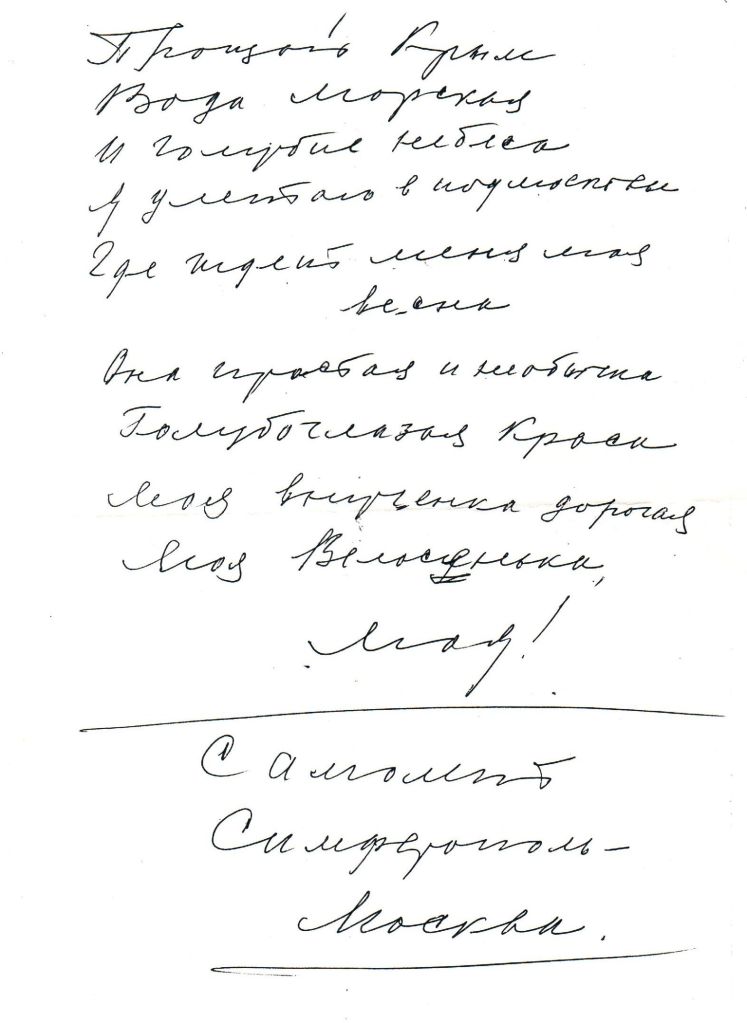 Прощай Крым
Вода морская
И голубые небеса
Я улетаю в подмосковье
Где ждет меня моя
весна
Она простая и необычна
Голубоглазая краса
Моя внученка дорогая
Моя
Моя!
Самолет
Симферополь-
Москва.